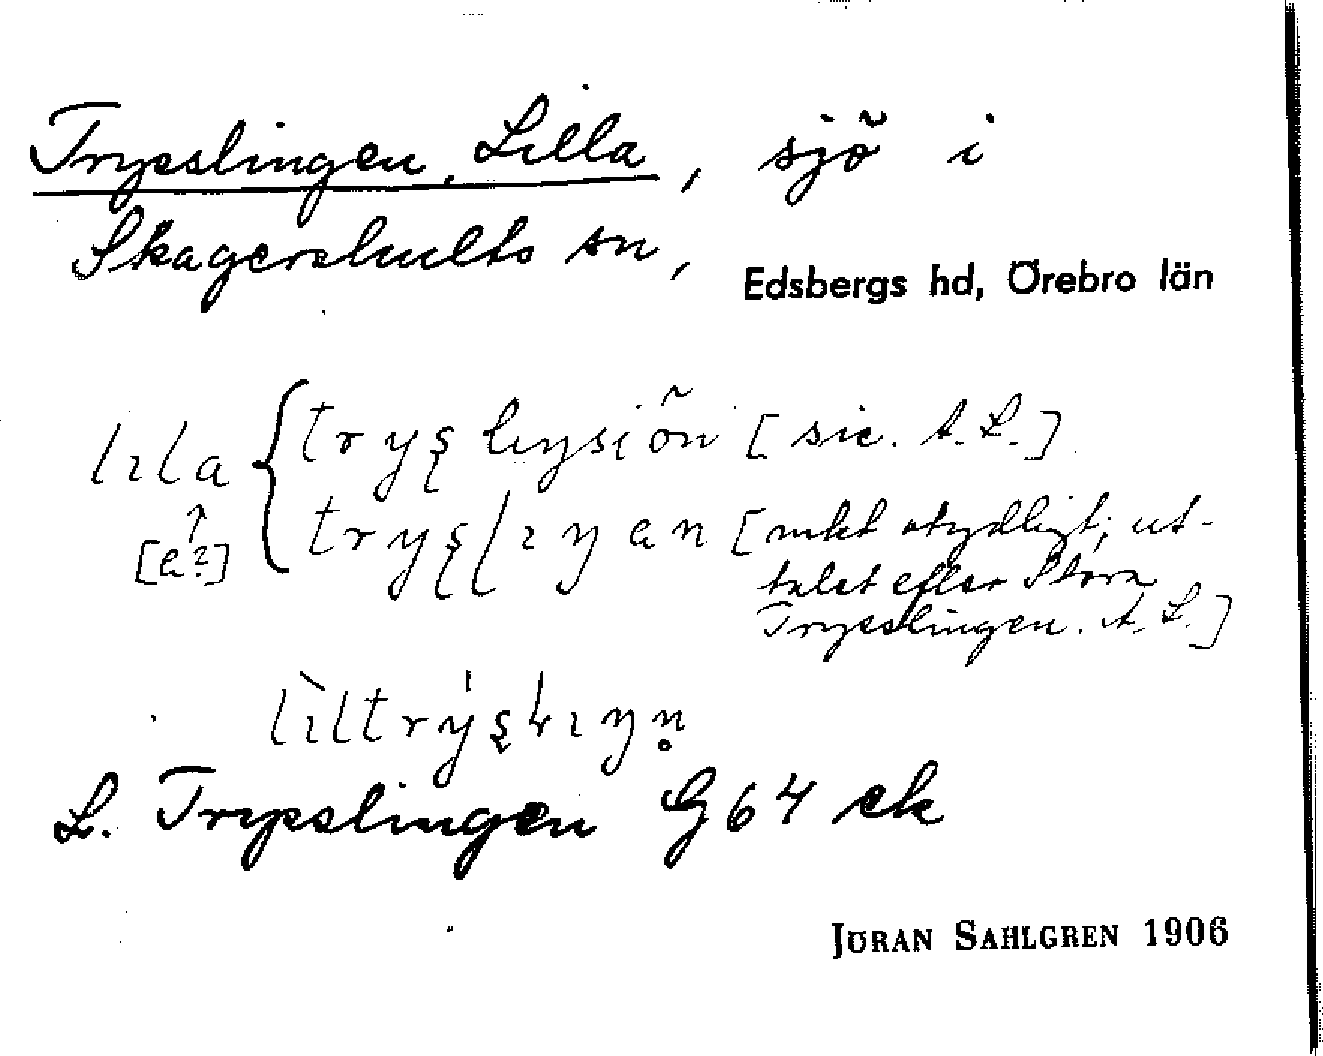 Trysslingen, Lilla, sjö i
Skagershults sn,
Edsbergs hd, Örebro län
lɪla { tryʂ lɪŋsiön [sic. A. L.]
[a?] tryʂlɪŋ an [mkt otydligt; ut-
talet efter Stora
Trysslingen. A. L.]
L. Trysslingen G 64 ek
JÖRAN SAHLGREN 1906